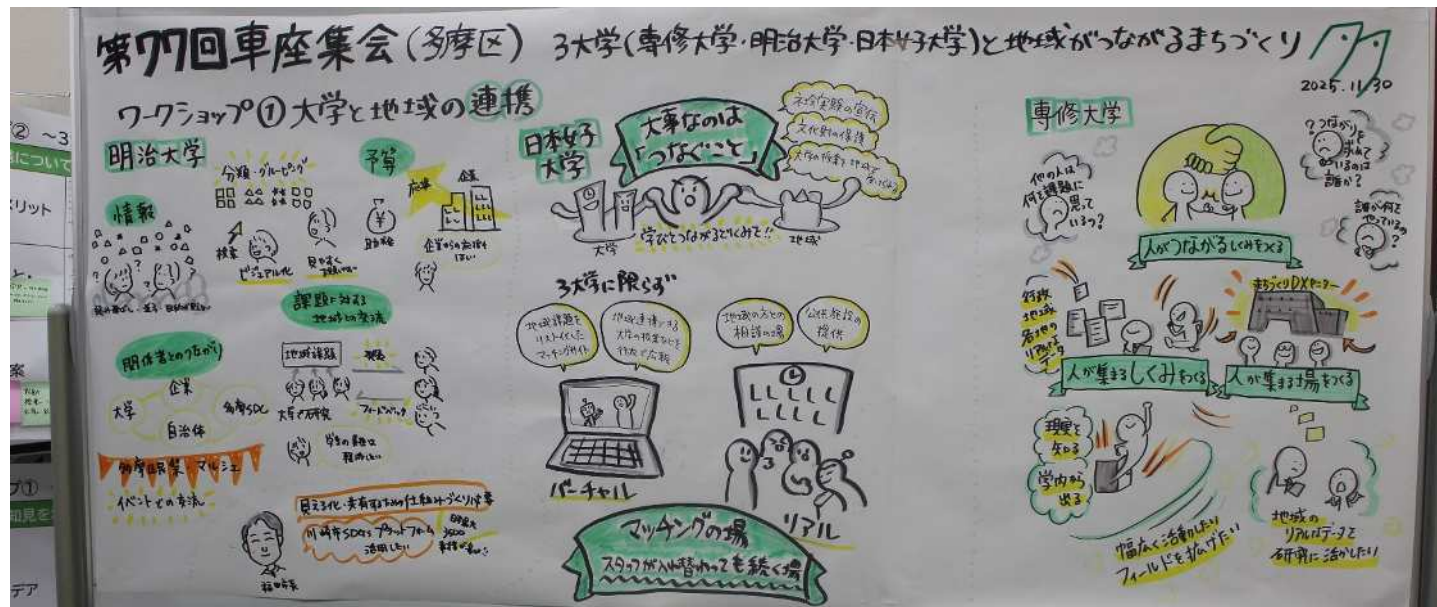 第77回車座集会(多摩区) 3大学(専修大学・明治大学・日本女子大学)と地域がつながるまちづくり
2025.11/30
ワークショップ① 大学と地域の連携
明治大学
情報
分類・グルーピング
検索
ビジュアル化
見やすく
予算
補助金
企業
企業からの支援も
ほしい
課題に対する
地域との交流
地域課題
大学で研究
フィードバック
関係者とのつながり
企業
大学
多摩SDC
自治体
多摩区民祭・マルシェ
イベントでの交流
見える化・共有するための仕組みづくりは大事
川崎市SDGsプラットフォーム
活用したい
3500
福田市長
日本女子
大学
大事なのは
「つなぐこと」
社会実験の宣伝
文化財の保護
大学の授業を地域で
大学
学びでつながるしくみで!!
地域
3大学に限らず
地域課題を
リスト化した
マッチングサイト
地域連携できる
大学の授業などを
行政で広報
地域の方との
相談の場
公共施設の
提供
バーチャル
リアル
マッチングの場
スタッフが入れ替わっても続く場
専修大学
他の人は
何を課題に
思って
いるの?
?つながりを
求めて
いるのは
誰か?
誰が何を
やっているの
?
人がつながるしくみをつくる
行政
地域
各地の
リアルな
データ
まちづくりDXセンター
人が集まるしくみをつくる
人が集まる場をつくる
現実を
知る
学内から
出る
幅広く活動したい
フィールドを拡げたい
地域の
リアルなデータを
研究に活かしたい
② ~3
について
リット
案
プ①
知見を
デア